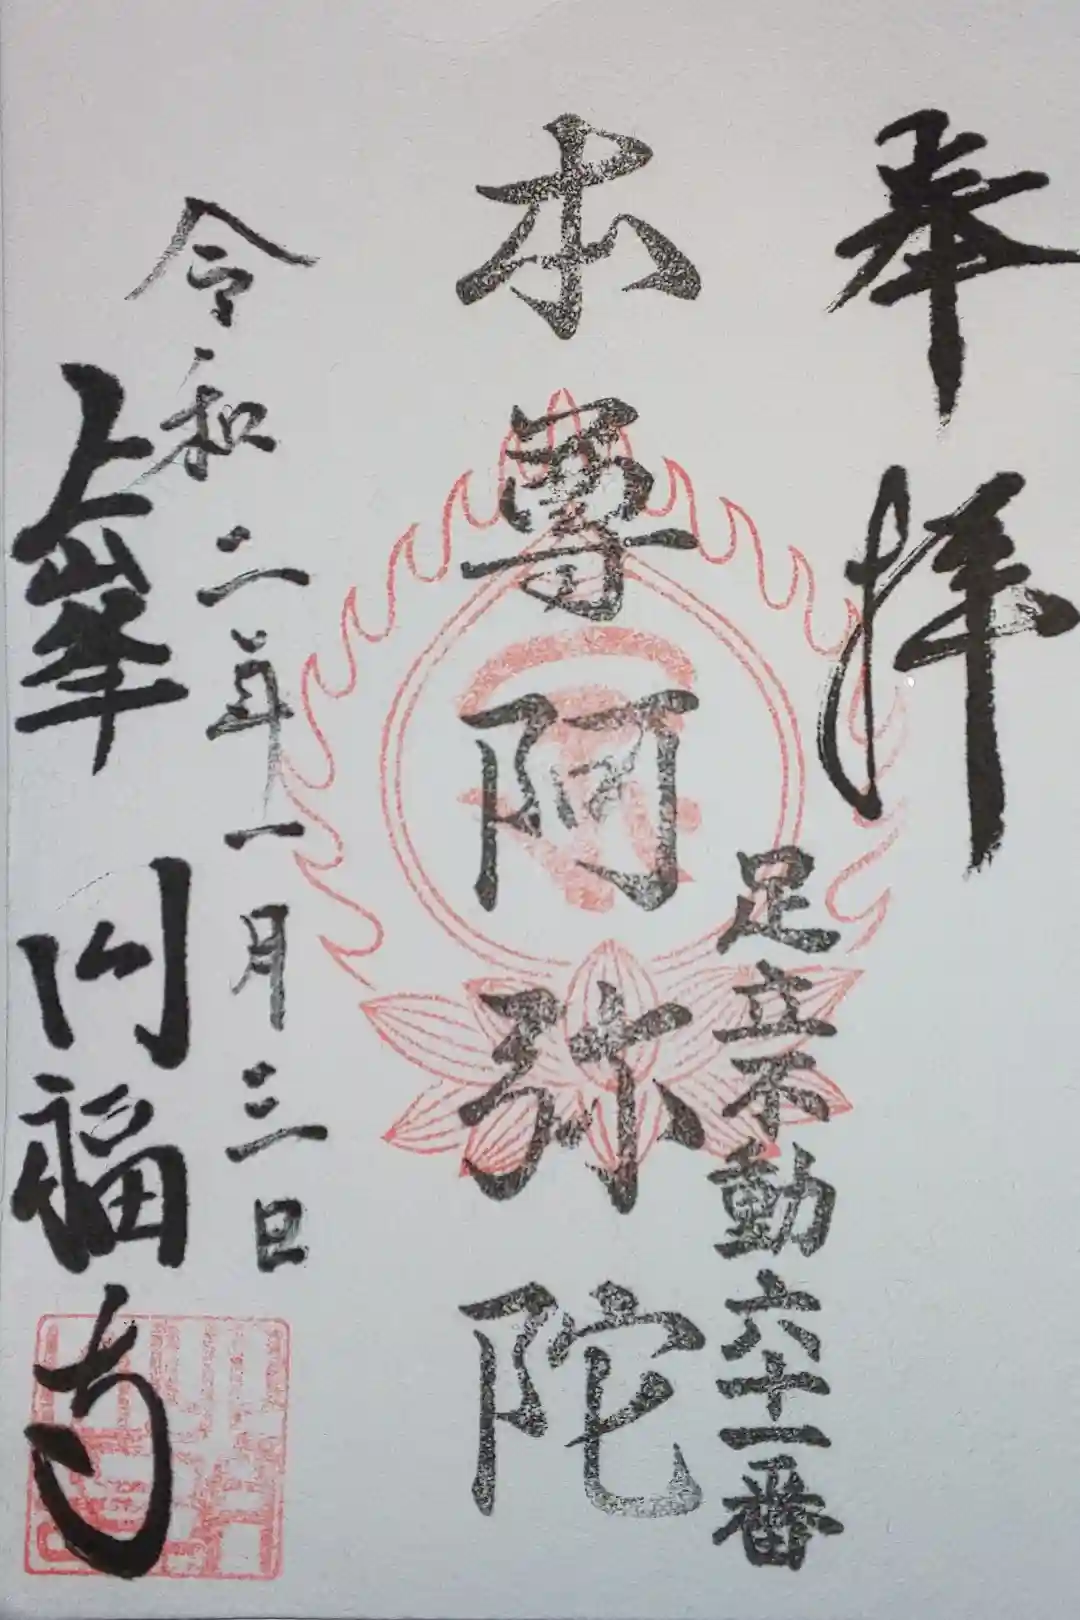 奉拝
足立不動六十一番
本尊阿弥陀
令和二年一月三日
上峯
円福寺